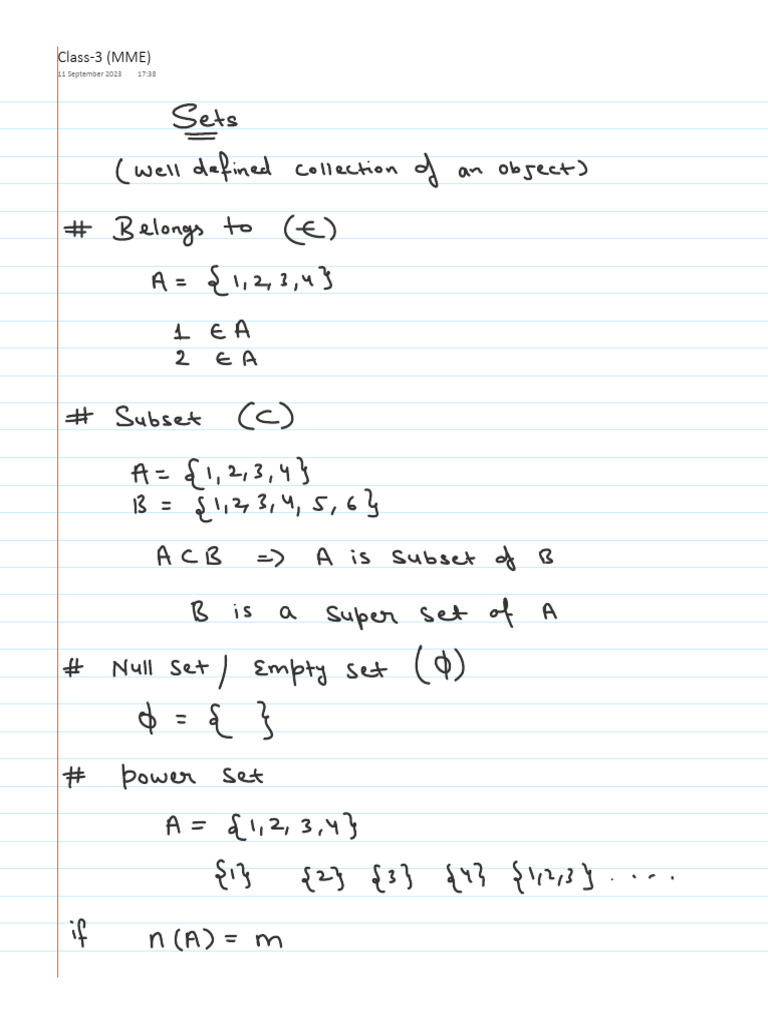 Class-3 (MME)
11 September 2023 17:38
Sets
(well defined collection of an object)
# Belongs to (∈)
A = {1,2,3,4}
1 ∈ A
2 ∈ A
# Subset (⊂)
A = {1,2,3,4}
B = {1,2,3,4,5,6}
A⊂B => A is subset of B
B is a super set of A
# Null set/ Empty set (ϕ)
ϕ = { }
# power set
A = {1,2,3,4}
{1} {2} {3} {4} {1,2,3} ....
if n(A) = m